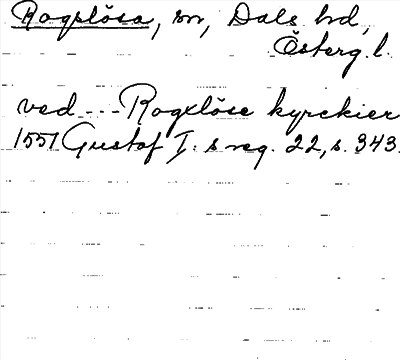 Rogslösa, sn, Dals hd,
Österg. l.
ved - - - Rogxlöse kyrckier
1551 Gustaf I:s reg. 22, s. 343.